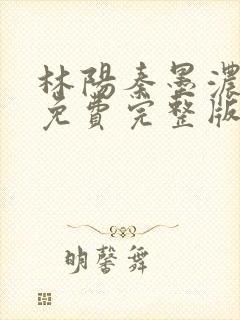 林陽秦墨濃
免費完整版
明馨舞